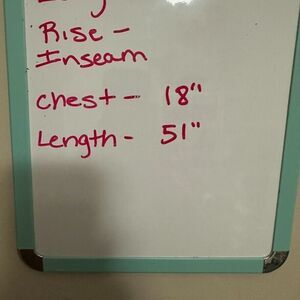 Rise -
Inseam
Chest - 18"
Length - 51"